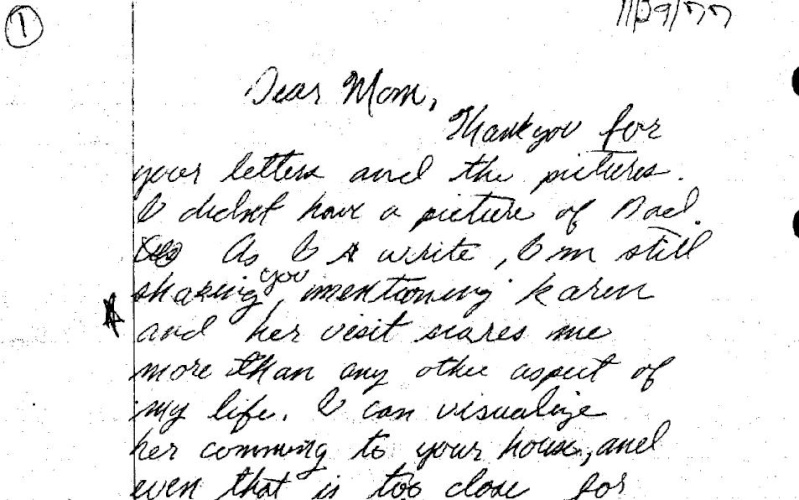 1
11/29/77
Dear Mom,
Thank you for
your letters and the pictures.
I didn't have a picture of Dad.
As I write, I'm still
shaking, you mentioning Karen
and her visit scares me
more than any other aspect of
my life. I can visualize
her comming to your house, and
even that is too close for